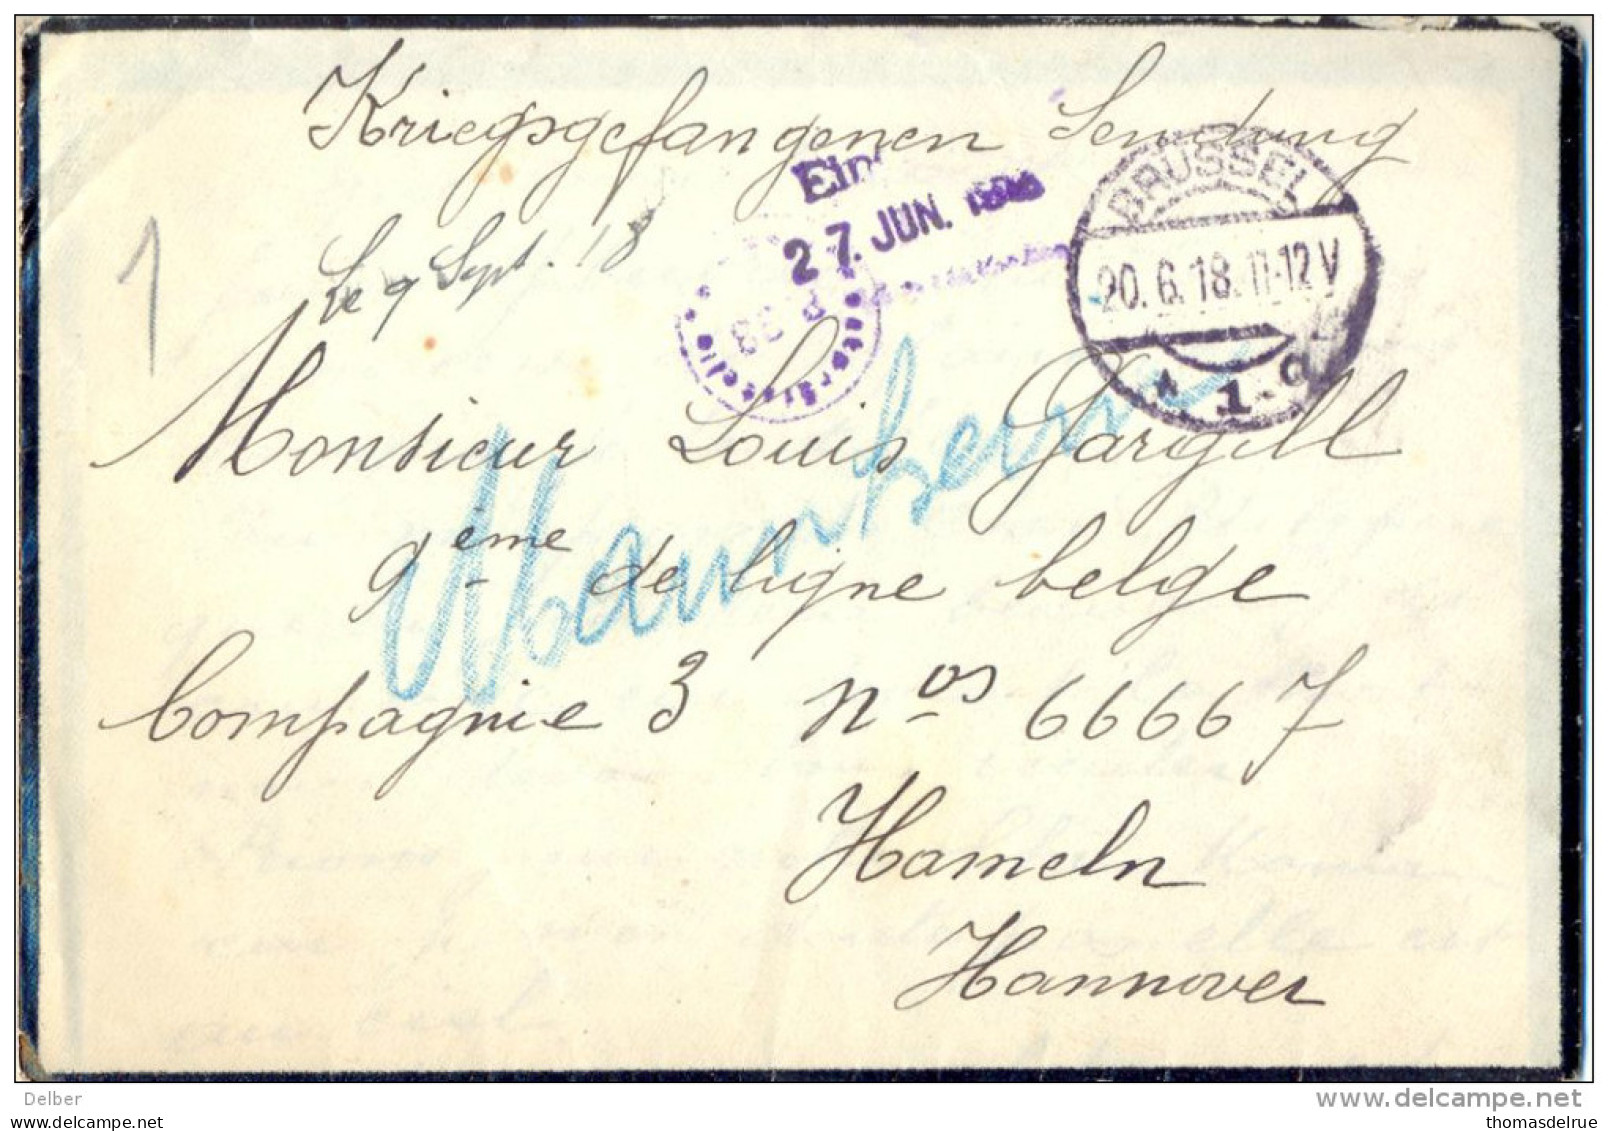 Kriegsgefangenen Sendung
Ein
27. JUN. 1918
BRUSSEL
20.6.18.11-12V
1
1
Re 9 Sept. 18
Monsieur Louis Gargill
Mannheim
9ème de ligne belge
Compagnie 3 nos 66667
Hameln
Hannover
Delber
www.delcampe.net
thomasdelrue